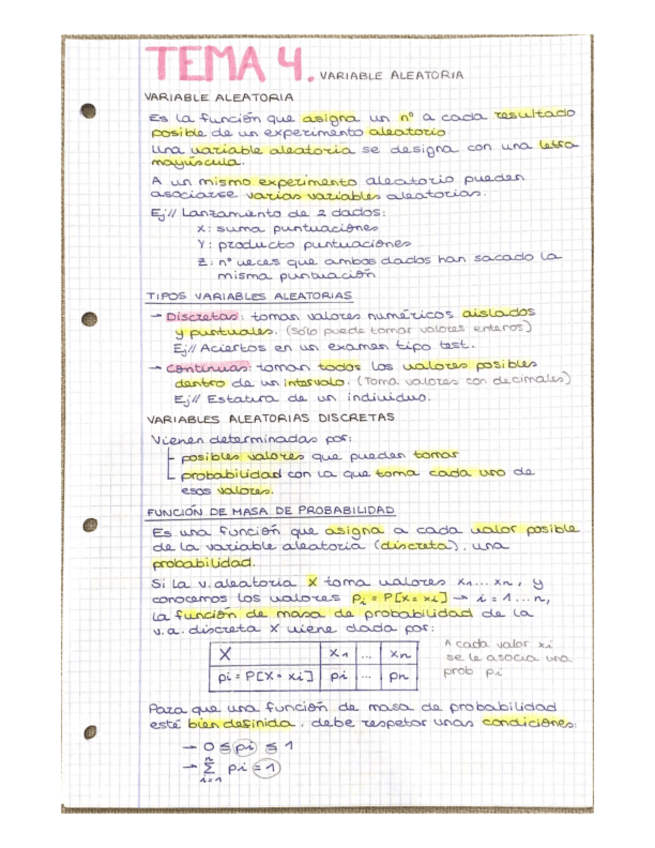 TEMA 4. VARIABLE ALEATORIA
VARIABLE ALEATORIA
Es la función que asigna un nº a cada resultado
posible de un experimento aleatorio
Una variable aleatoria se designa con una letra
mayúscula.
A un mismo experimento aleatorio pueden
asociarse varias variables aleatorias.
Ej// Lanzamiento de 2 dados:
X: suma puntuaciones
Y: producto puntuaciones
Z: nº veces que ambos dados han sacado la
misma puntuación
TIPOS VARIABLES ALEATORIAS
→ Discretas: toman valores numéricos aislados
y puntuales. (Sólo puede tomar valores enteros)
Ej// Aciertos en un examen tipo test.
→ Continuas: toman todos los valores posibles
dentro de un intervalo. (Toma valores con decimales)
Ej// Estatura de un individuo.
VARIABLES ALEATORIAS DISCRETAS
Vienen determinadas por:
posibles valores que pueden tomar
probabilidad con la que toma cada uno de
esos valores.
FUNCIÓN DE MASA DE PROBABILIDAD
Es una función que asigna a cada valor posible
de la variable aleatoria (discreta), una
probabilidad.
Si la v. aleatoria X toma valores x1... xn, y
conocemos los valores Pi = P[X = xi] → i = 1... n,
la función de masa de probabilidad de la
v.a. discreta X viene dada por:
X x1 ... xn
pi = P[X = xi] pi ... pn
A cada valor xi
se le asocia una
prob pi
Para que una función de masa de probabilidad
esté bien definida, debe respetar unas condiciones:
→ 0 ≤ pi ≤ 1
→ n∑i=1 pi = 1